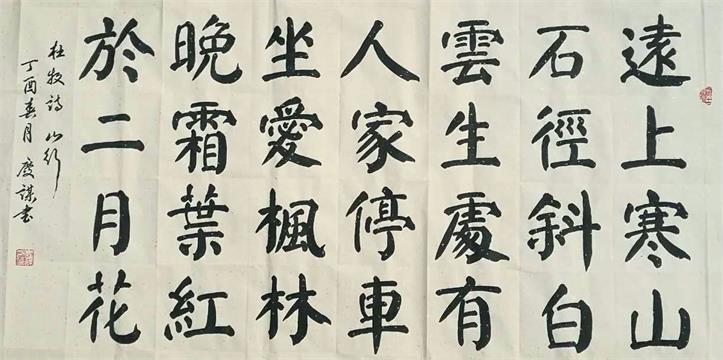 遠上寒山
石徑斜白
雲生處有
人家停車
坐愛楓林
晚霜葉紅
於二月花
杜牧詩 山行
丁酉春月 慶謀书